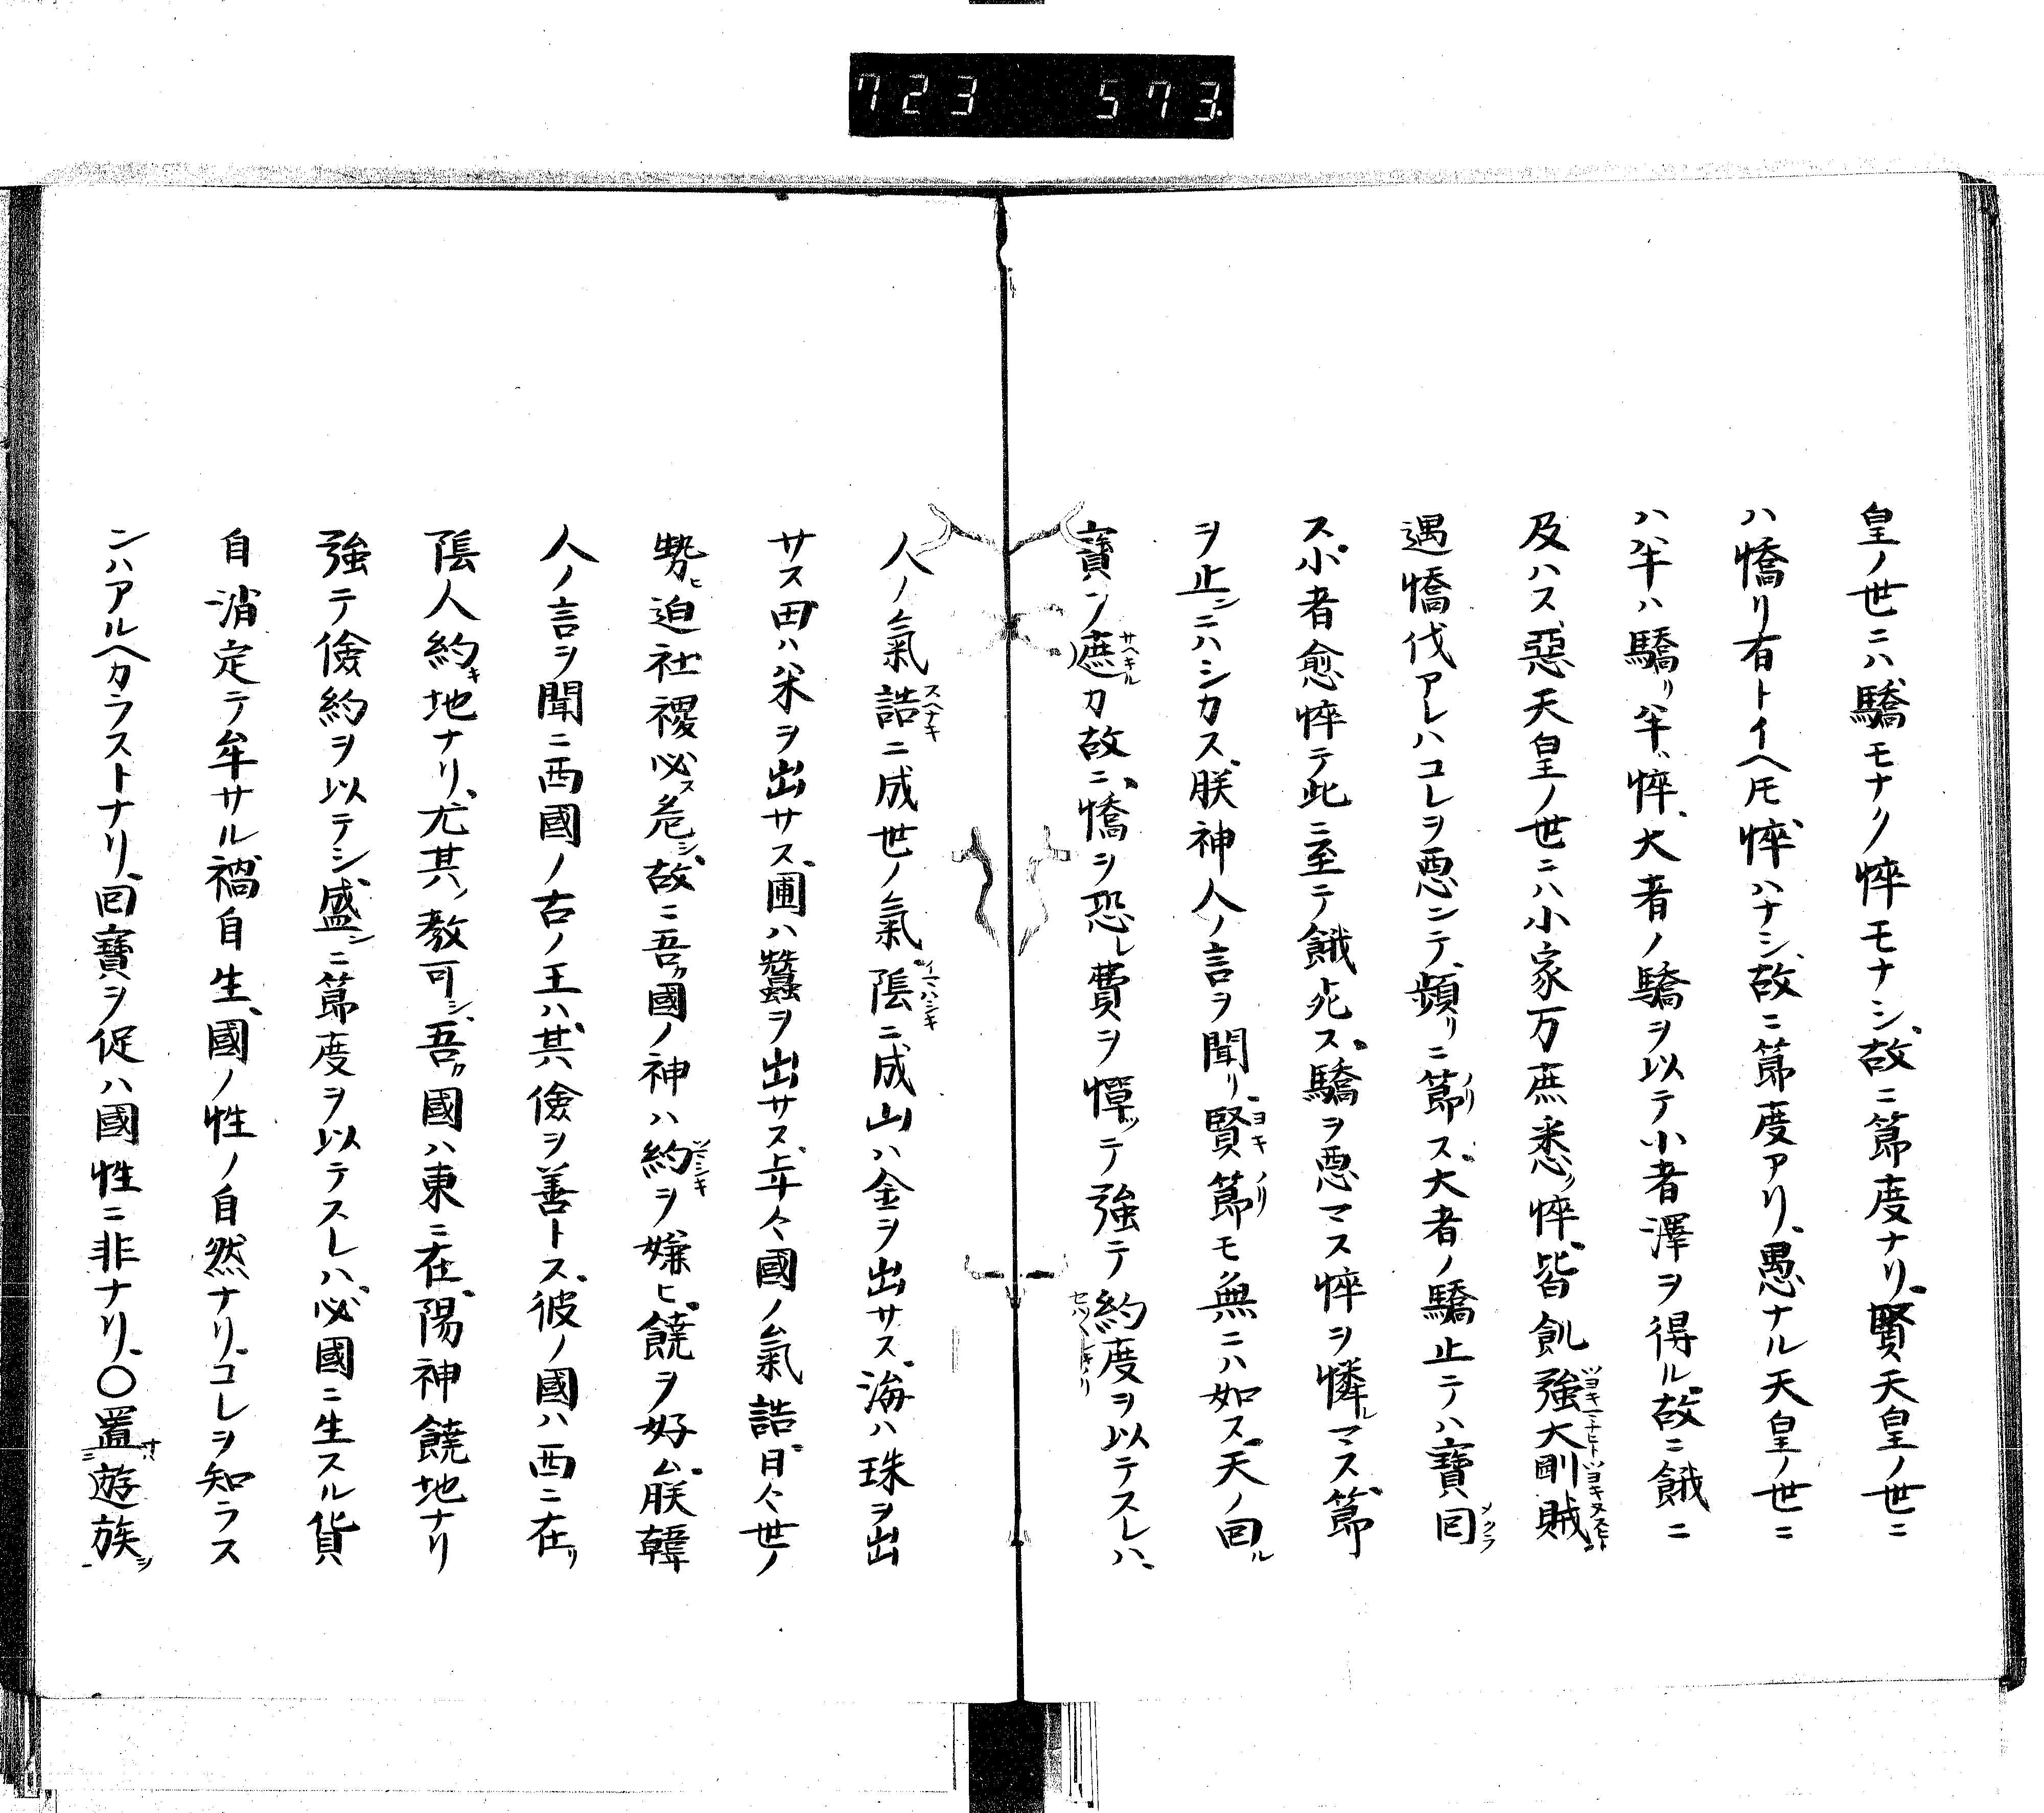 723 573
皇ノ世ニハ驕モナク悴モナシ故ニ節度ナリ賢天皇ノ世ニ
ハ憍リ有トイヘ𪜈悴ハナシ故ニ節度アリ愚ナル天皇ノ世ニ
ハ半ハ驕リ半ハ悴大者ノ驕ヲ以テ小者澤ヲ得ル故ニ餓ニ
及ハス惡天皇ノ世ニハ小家万庶悉ク悴皆飢強大剛賊
遇憍伐アレハコレヲ惡ンテ頻リニ節ス大者ノ驕止テハ寶囘
ス小者愈悴テ此ニ至テ餓死ス驕ヲ惡マス悴ヲ憐ルマス節
ヲ止ンニハシカス朕神人ノ言ヲ聞リ賢節モ無ニハ如ス天ノ囘ル
寶ノ遮カ故ニ憍ヲ恐レ費ヲ憚ッテ強テ約度ヲ以テスレハ
人ノ氣誥ニ成世ノ氣陰ニ成山ハ金ヲ出サス海ハ珠ヲ出
サス田ハ米ヲ出サス圃ハ蠶ヲ出サス年々國ノ氣誥日々世ノ
勢ヒ迫社稷必ス危シ故ニ吾カ國ノ神ハ約ヲ嫌ヒ饒ヲ好ム朕韓
人ノ言ヲ聞ニ西國ノ古ノ王ハ其儉ヲ善トス彼ノ國ハ西ニ在リ
陰人約キ地ナリ尤其ノ教可シ吾カ國ハ東ニ在陽神饒地ナリ
強テ儉約ヲ以テシ盛ンニ節度ヲ以テスレハ必國ニ生スル貨
自消定テ牟サル禍自生國ノ性ノ自然ナリコレヲ知ラス
ンハアルヘカラストナリ囘寶ヲ促ハ國性ニ非ナリ〇置遊族ヲ